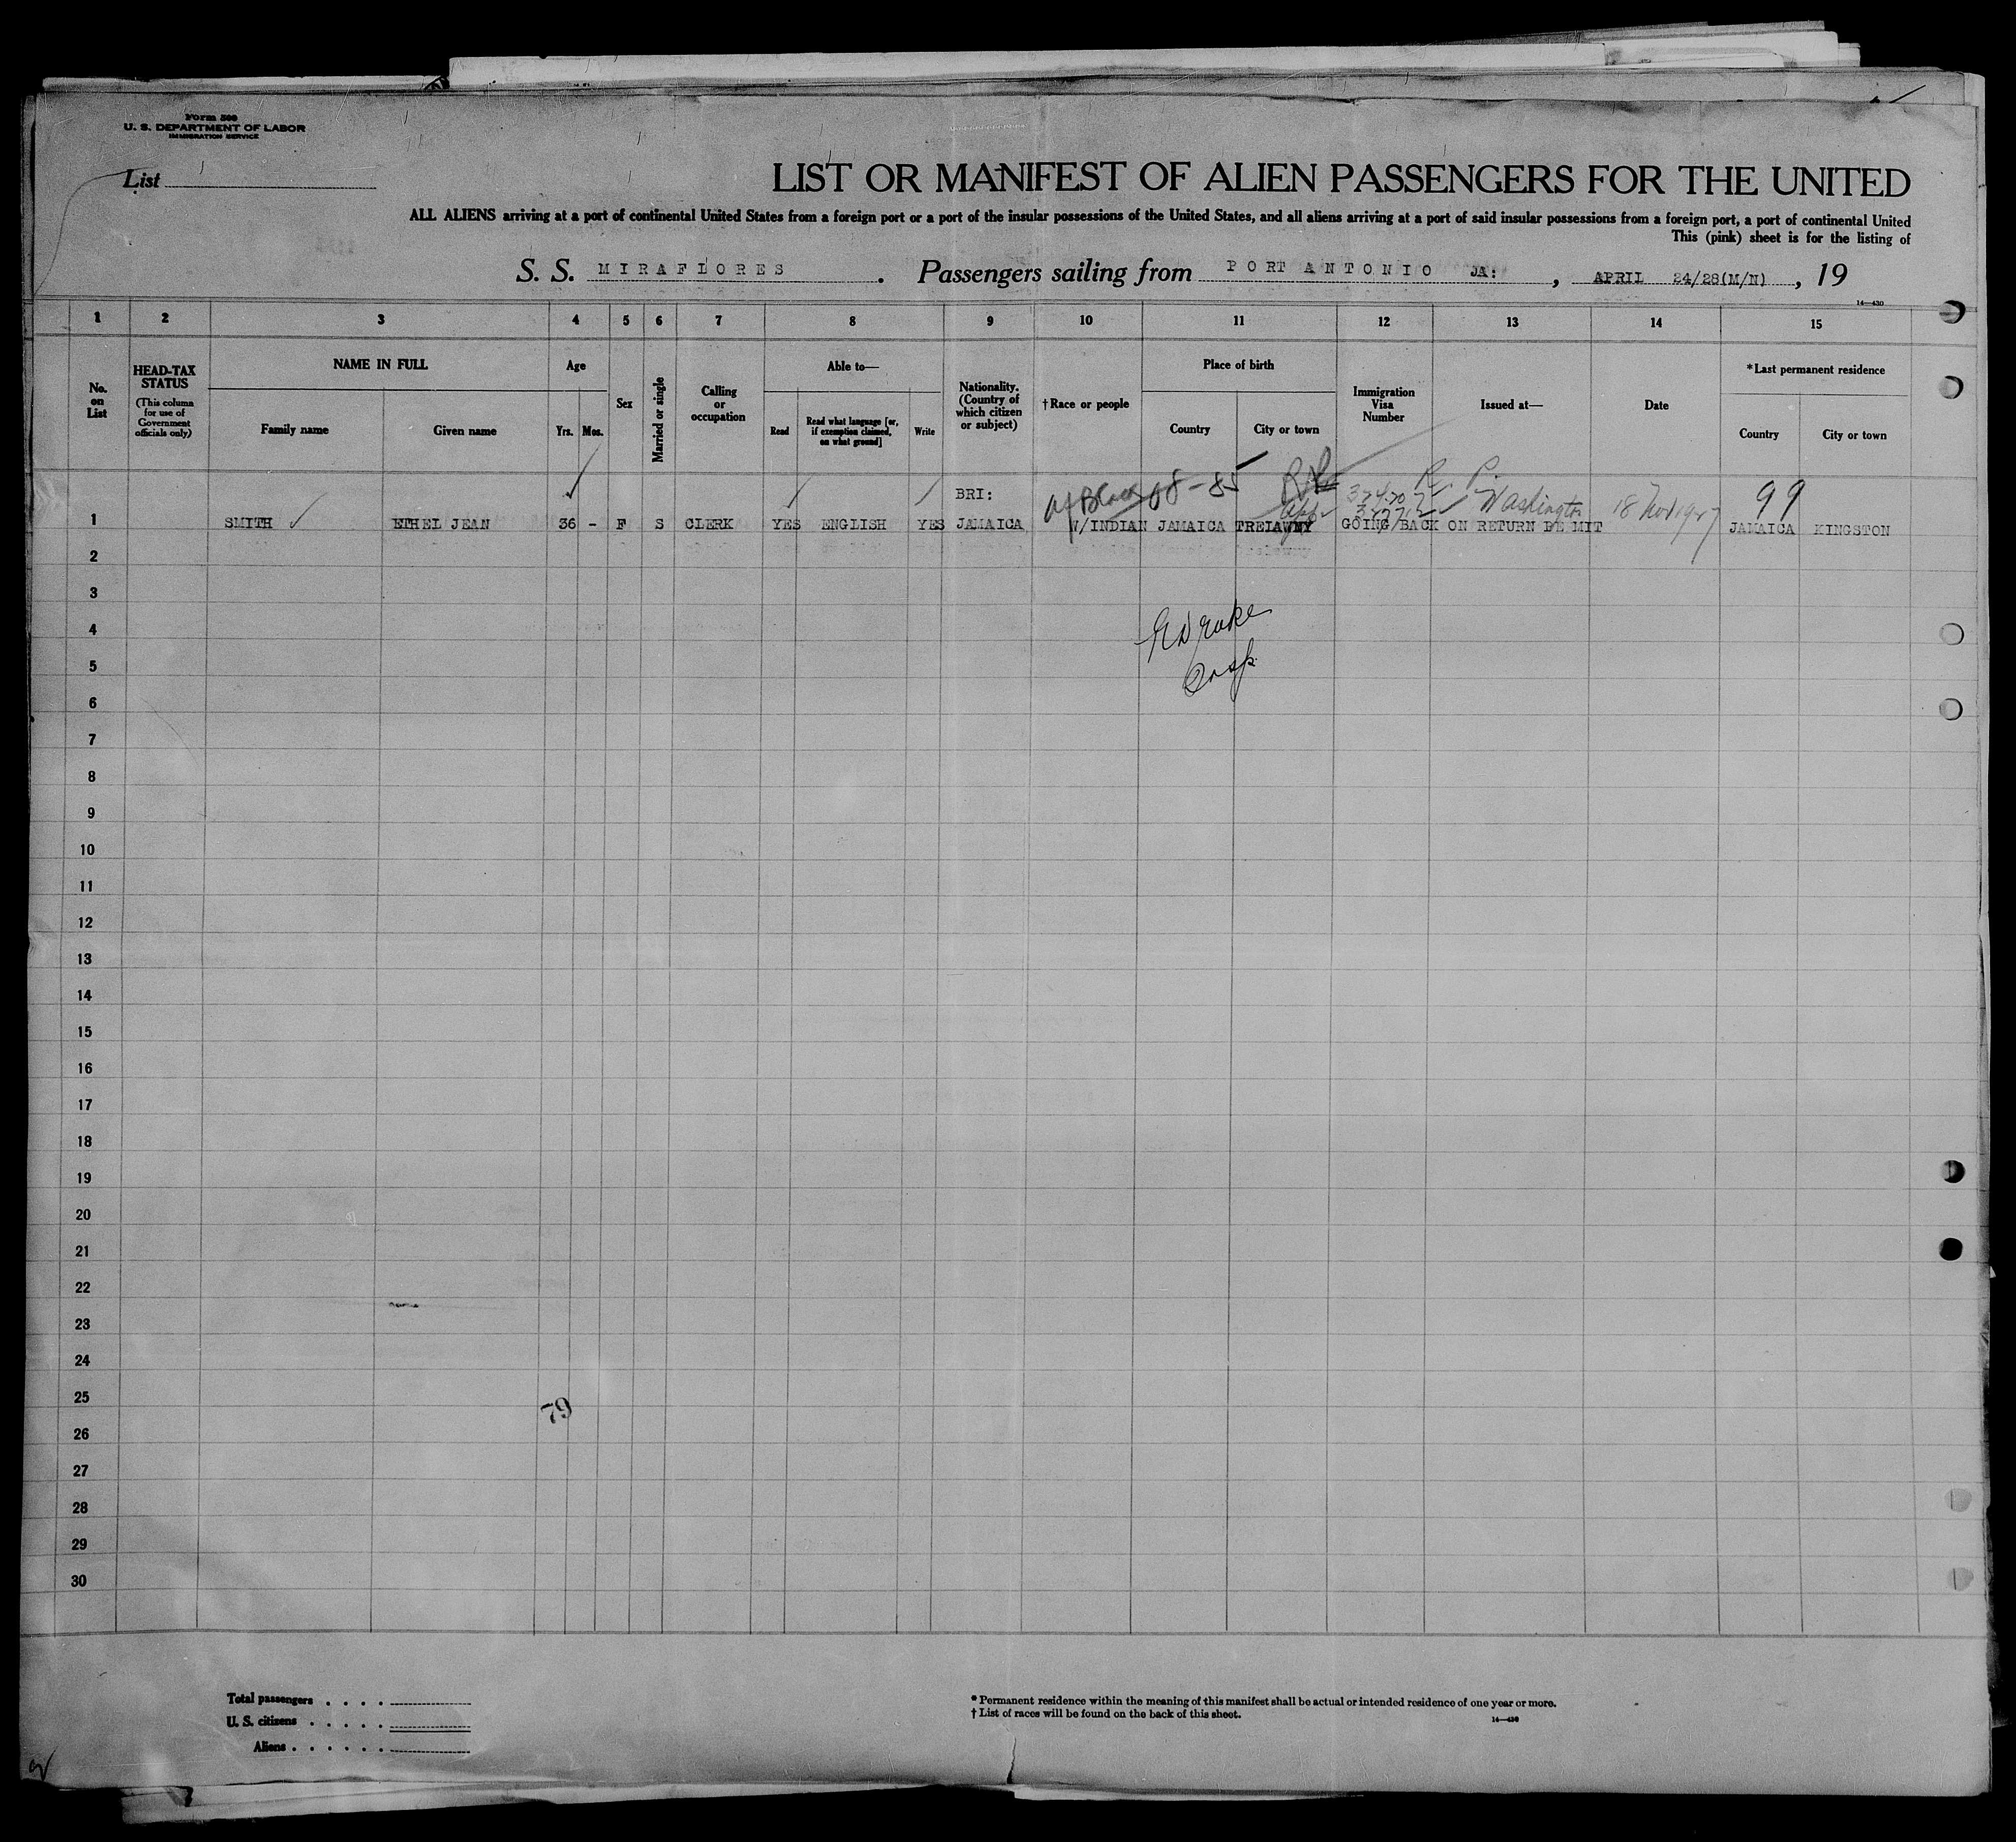 Form 500
U. S. DEPARTMENT OF LABOR
IMMIGRATION SERVICE
List 1
LIST OR MANIFEST OF ALIEN PASSENGERS FOR THE UNITED
ALL ALIENS arriving at a port of continental United States from a foreign port or a port of the insular possessions of the United States, and all aliens arriving at a port of said insular possessions from a foreign port, a port of continental United
This (pink) sheet is for the listing of
S. S. MIRAFLORES . Passengers sailing from PORT ANTONIO JA: , APRIL 24/28(M/N) , 19
14—430
1 2 3 4 5 6 7 8 9 10 11 12 13 14 15
No. on List
HEAD-TAX STATUS (This column for use of Government officials only)
NAME IN FULL
Family name Given name
Age
Yrs. Mos.
Sex
Married or single
Calling or occupation
Able to—
Read Read what language [or, if exemption claimed, on what ground] Write
Nationality. (Country of which citizen or subject)
†Race or people
Place of birth
Country City or town
Immigration Visa Number
Issued at—
Date
*Last permanent residence
Country City or town
BRI: Af Black 08-85 R. P. Washington 18 Nov 1927 99
1 SMITH ETHEL JEAN 36 - F S CLERK YES ENGLISH YES JAMAICA W/INDIAN JAMAICA GOING BACK ON RETURN PE MIT JAMAICA KINGSTON
2
3
4
5
6
7
8
9
10
11
12
13
14
15
16
17
18
19
20
21
22
23
24
25
79
26
27
28
29
30
Total passengers . . . .
U. S. citizens . . . . .
Aliens . . . . . .
* Permanent residence within the meaning of this manifest shall be actual or intended residence of one year or more.
† List of races will be found on the back of this sheet.
14—430